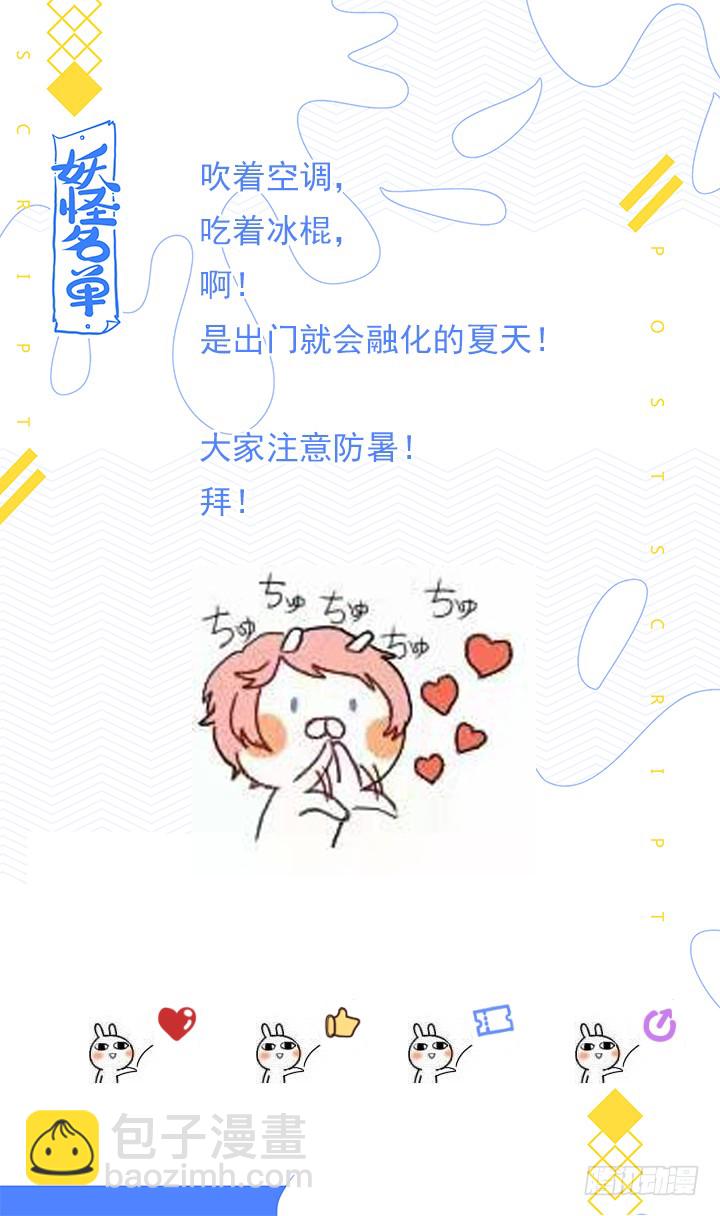 SCRIPT
妖怪名单
吹着空调，
吃着冰棍，
啊！
是出门就会融化的夏天！
大家注意防暑！
拜！
POSTSCRIPT
ちゅ
ちゅ
ちゅ
ちゅ
ちゅ
包子漫畫
baozimh.com
腾讯动漫